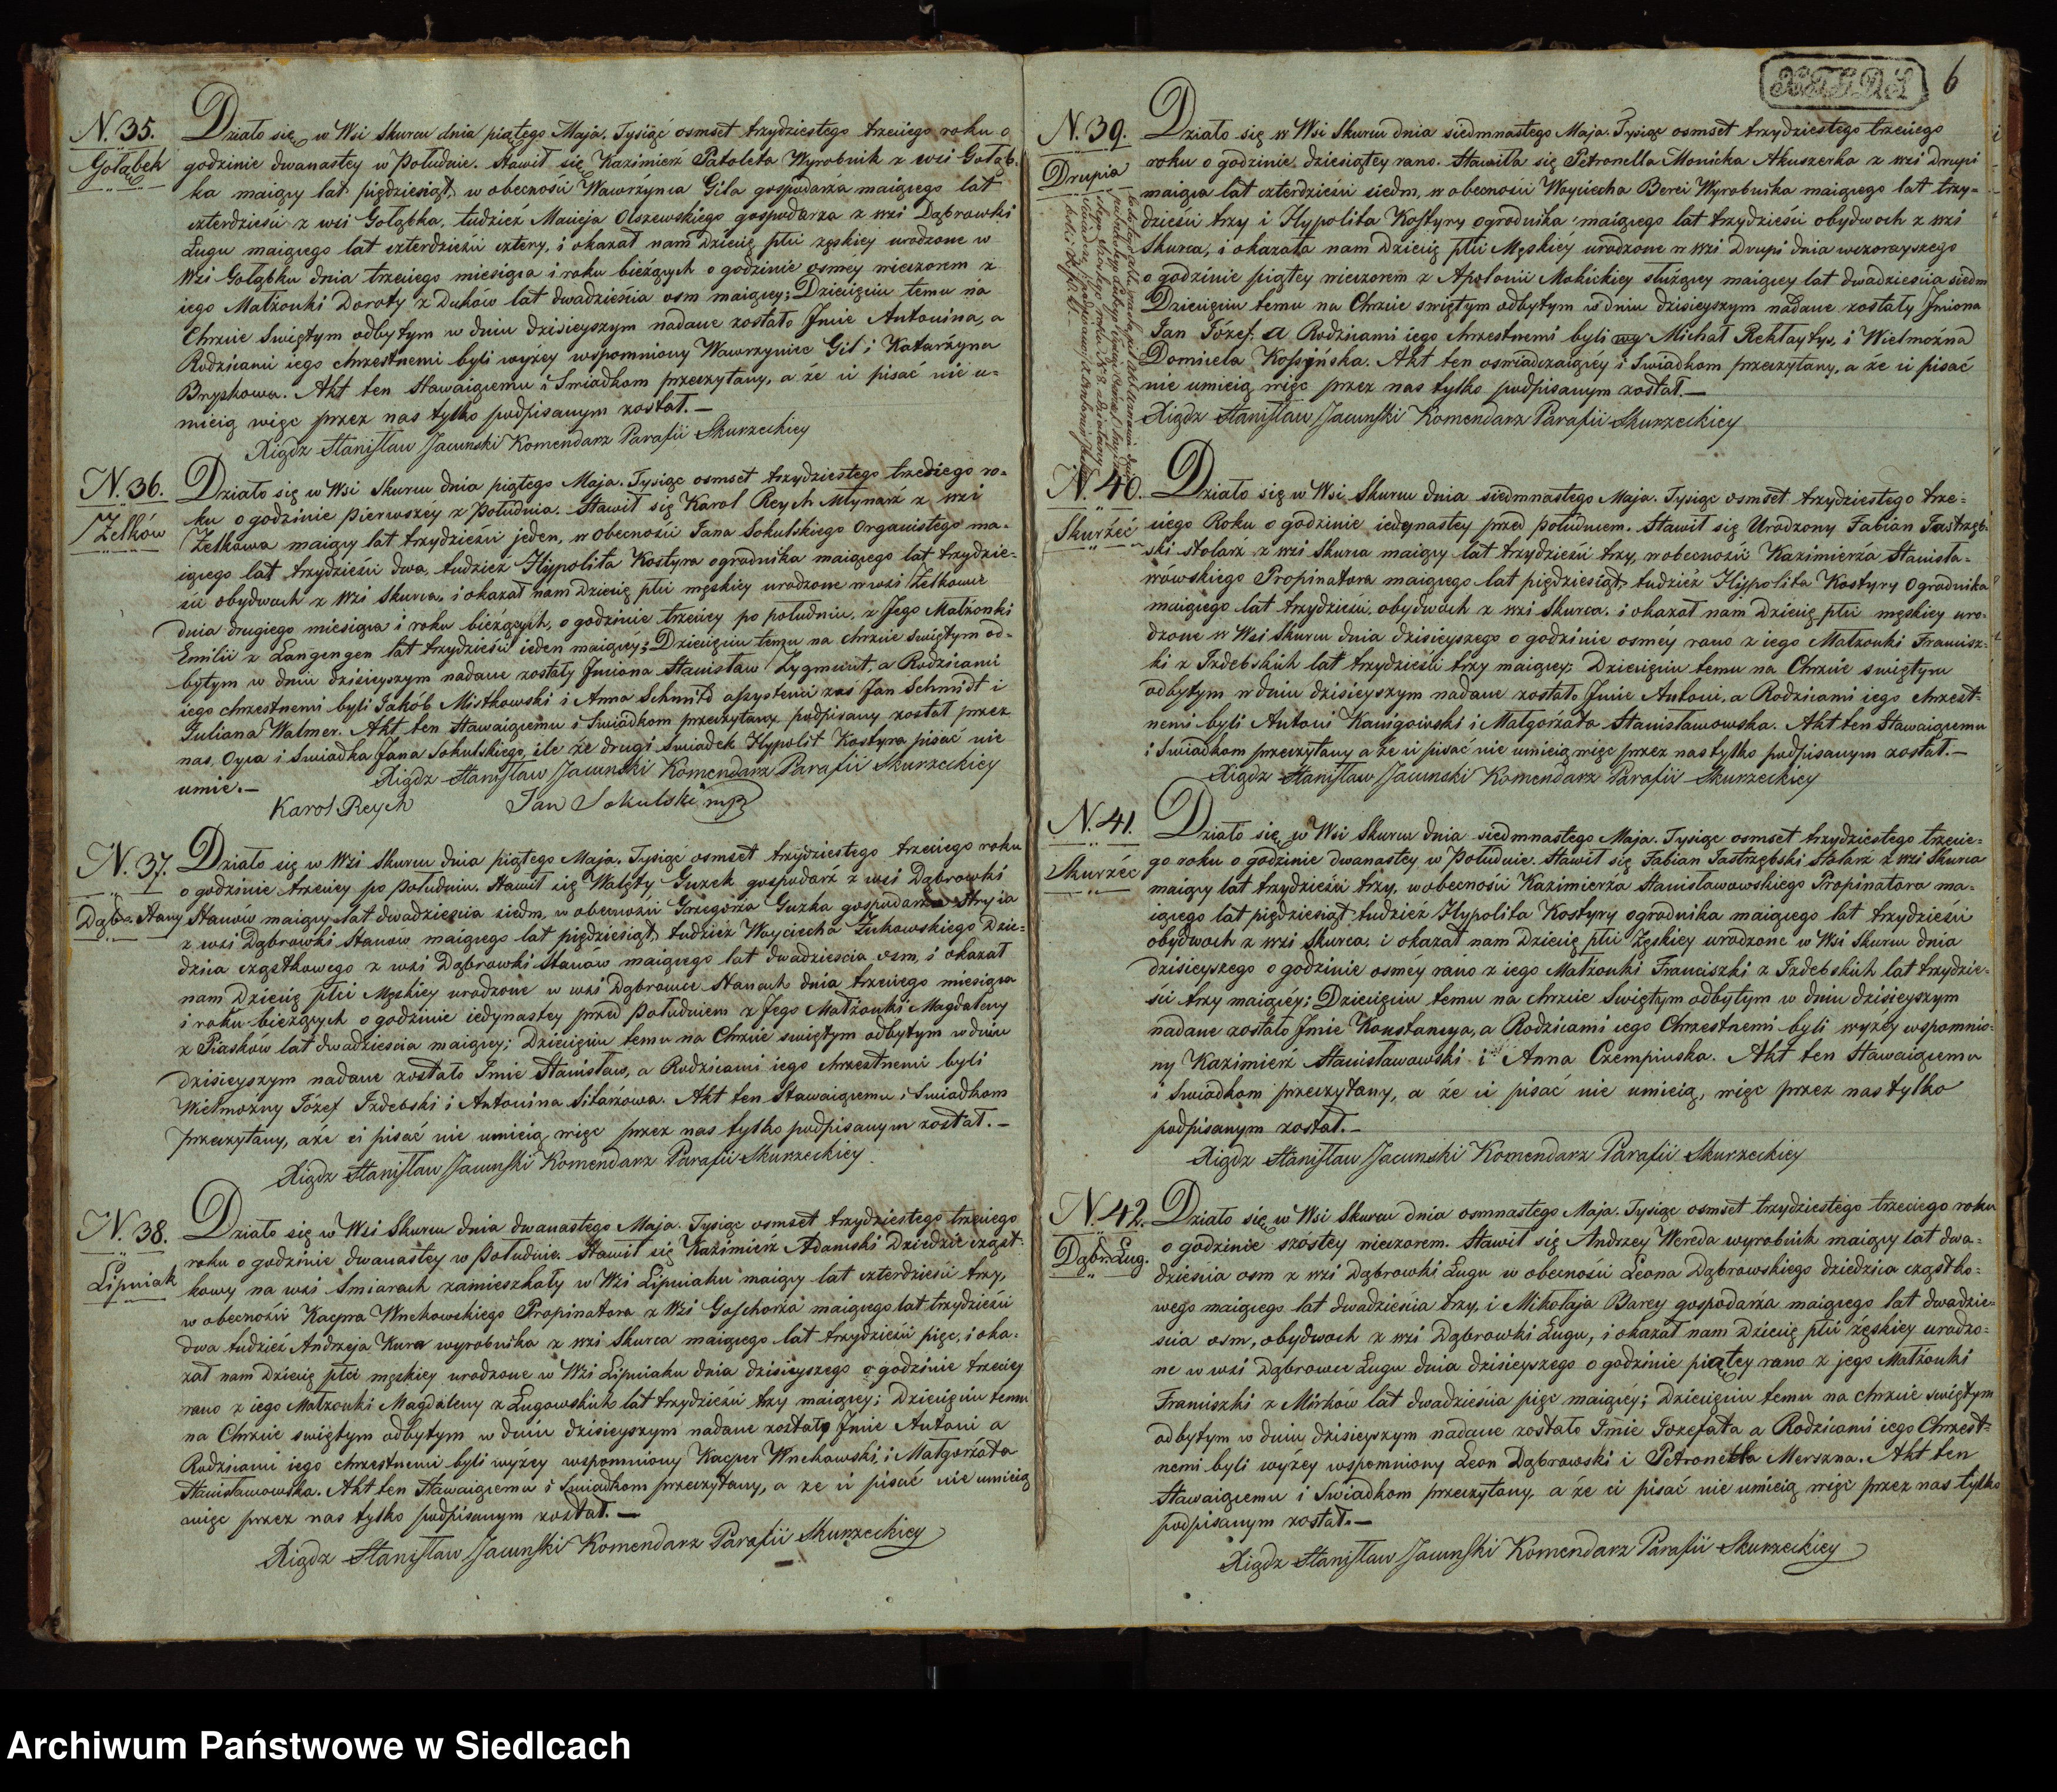 N. 35.
Gołąbek
Działo się w Wsi Skurcu dnia piątego Maja. Tysiąc osmset trzydziestego trzeciego roku o
godzinie dwanastey w Południe. Stawił się Kazimierz Patoleta Wyrobnik z wsi Gołąb-
ka maiący lat pięćdziesiąt, w obecności Wawrzyńca Gila gospodarza maiącego lat
czterdzieści z wsi Gołąbka, tudzież Macieja Olszewskiego gospodarza z wsi Dąbrowki
Ługu maiącego lat czterdzieści cztery, i okazał nam Dziecię płci żęskiey urodzone w
Wsi Gołąbku dnia trzeciego miesiąca i roku bieżących o godzinie osmey wieczorem z
iego Małżonki Doroty z Duków lat dwadzieścia osm maiącey; Dziecięciu temu na
Chrzcie Swiętym odbytym w dniu dzisieyszym nadane zostało Jmie Antonina, a
Rodzicami iego chrzestnemi byli wyżey wspomniony Wawrzyniec Gil i Katarzyna
Bryskowa. Akt ten Stawaiącemu i Swiadkom przeczytany, a że ci pisać nie u-
mieią więc przez nas tylko podpisanym został.—
Xiądz Stanisław Jacunski Komendarz Parafii Skurzeckiey
N. 36.
Żelków
Działo się w Wsi Skurcu dnia piątego Maja. Tysiąc osmset trzydziestego trzeciego ro-
ku o godzinie pierwszey z Południa. Stawił się Karol Reych Młynarz z wsi
Żelkowa maiący lat trzydzieści jeden, w obecności Jana Sokulskiego Organistego ma-
iącego lat trzydzieści dwa, tudzież Hyppolita Kostyra ogrodnika maiącego lat trzydzie-
ści obydwuch z wsi Skurca, i okazał nam Dziecię płci męskiey urodzone w wsi Żelkowie
dnia drugiego miesiąca i roku bieżących, o godzinie trzeciey po południu, z Jego Małżonki
Emilii z Langengen lat trzydzieści ieden maiącey; Dziecięciu temu na chrzcie swiętym od-
bytym w dniu dzisieyszym nadane zostały Jmiona Stanisław Zygmunt, a Rodzicami
iego chrzestnemi byli Jakób Mistkowski i Anna Schmitd assystenci zaś Jan Schmidt i
Juliana Walmer. Akt ten Stawaiącemu i Swiadkom przeczytany podpisany został przez
nas, Oyca i Swiadka Jana Sokulskiego, ile że drugi Swiadek Hypolit Kostyra pisać nie
umie.—
Xiądz Stanisław Jacunski Komendarz Parafii Skurzeckiey
Karol Reych Jan Sokulski mp
N. 37.
Dąbr. Stany
Działo się w Wsi Skurcu dnia piątego Maja. Tysiąc osmset trzydziestego trzeciego roku
o godzinie trzeciey po Południu. Stawił się Walęty Guzek gospodarz z wsi Dąbrowki
Stanów maiący lat dwadzieścia siedm, w obecności Grzegorza Guzka gospodarza Stryia
z wsi Dąbrowki Stanów maiącego lat pięćdziesiąt, tudzież Woyciecha Żukowskiego Dzie-
dzica cząstkowego z wsi Dąbrowki Stanów maiącego lat dwadzieścia osm, i okazał
nam Dziecię płci Męskiey urodzone w wsi Dąbrowce Stanach dnia trzeciego miesiąca
i roku bieżących o godzinie iedynastey przed Południem z Jego Małżonki Magdaleny
z Piasków lat dwadzieścia maiącey; Dziecięciu temu na Chrzcie swiętym odbytym w dniu
dzisieyszym nadane zostało Jmie Stanisław, a Rodzicami iego chrzestnemi byli
Wielmożny Józef Izdebski i Antonina Sitarzowa. Akt ten Stawaiącemu i Swiadkom
przeczytany, aże ci pisać nie umieią więc przez nas tylko podpisanym został.—
Xiądz Stanisław Jacunski Komendarz Parafii Skurzeckiey
N. 38.
Lipniak
Działo się w Wsi Skurcu dnia dwanastego Maja. Tysiąc osmset trzydziestego trzeciego
roku o godzinie dwanastey w Południe. Stawił się Kazimierz Adamski Dziedzic cząst-
kowy na wsi Smiarach zamieszkały w Wsi Lipniaku maiący lat czterdzieści trzy,
w obecności Kacpra Wnekowskiego Propinatora z Wsi Goschorza maiącego lat trzydzieści
dwa tudzież Andrzeja Kura wyrobnika z wsi Skurca maiącego lat trzydzieści pięc, i oka-
zał nam Dziecię płci męskiey urodzone w Wsi Lipniaku dnia dzisieyszego o godzinie trzeciey
rano z iego Małżonki Magdaleny z Ługowskich lat trzydzieści trzy maiącey; Dziecięciu temu
na Chrzcie swiętym odbytym w dniu dzisieyszym nadane zostało Jmie Antoni a
Rodzicami iego chrzestnemi byli wyżey wspomniony Kacper Wnekowski, i Małgorzata
Stanisławowska. Akt ten Stawaiącemu i Swiadkom przeczytany, a ze ci pisać nie umieią
więc przez nas tylko podpisanym został.—
Xiądz Stanisław Jacunski Komendarz Parafii Skurzeckiey
6
N. 39.
Drupia
Działo się w Wsi Skurcu dnia siedmnastego Maja. Tysiąc osmset trzydziestego trzeciego
roku o godzinie dziesiątey rano. Stawiła się Petronella Monicka Akuszerka z wsi Drupi
maiąca lat czterdzieści siedm, w obecności Woyciecha Berei Wyrobnika maiącego lat trzy-
dzieści trzy i Hypolita Kostyry ogrodnika maiącego lat trzydzieści obydwoch z wsi
Skurca, i okazała nam Dziecię płci Męskiey urodzone w wsi Drupi dnia wczorayszego
o godzinie piątey wieczorem z Apolonii Makickiey służącey maiącey lat dwadzieścia siedm
Dziecięciu temu na Chrzcie swiętym odbytym w dniu dzisieyszym nadane zostały Jmiona
Jan Józef. a Rodzicami iego chrzestnemi byli wy Michał Rektaytys, i Wielmożna
Domicela Kossyńska. Akt ten oswiadczaiącéy i Swiadkom przeczytany, a że ci pisać
nie umieią więc przez nas tylko podpisanym został.—
Xiądz Stanisław Jacunski Komendarz Parafii Skurzeckiey
N. 40.
Skurzec
Działo się w Wsi Skurcu dnia siedmnastego Maja. Tysiąc osmset trzydziestego trze-
ciego Roku o godzinie iedynastey przed południem. Stawił się Urodzony Fabian Jastrzęb-
ski stolarz z wsi Skurca maiący lat trzydzieści trzy, w obecności Kazimierza Stanisła-
wowskiego Propinatora maiącego lat pięćdziesiąt, tudzież Hypolita Kostyry Ogrodnika
maiącego lat trzydzieści, obydwoch z wsi Skurca, i okazał nam Dziecię płci męskiey uro-
dzone w Wsi Skurcu dnia dzisieyszego o godzinie osméy rano z iego Małżonki Francisz-
ki z Izdebskich lat trzydzieści trzy maiącey; Dziecięciu temu na Chrzcie swiętym
odbytym w dniu dzisieyszym nadane zostało Jmie Antoni, a Rodzicami iego chrzest-
nemi byli Antoni Kamgowski i Małgorzata Stanisławowska. Akt ten Stawaiącemu
i Swiadkom przeczytany a że ci pisać nie umieią więc przez nas tylko podpisanym został.—
Xiądz Stanisław Jacunski Komendarz Parafii Skurzeckiey
N. 41.
Skurzéc
Działo się w Wsi Skurcu dnia siedmnastego Maja. Tysiąc osmset trzydziestego trzecie-
go roku o godzinie dwanastey w Południe. Stawił się Fabian Jastrzębski Stolarz z wsi Skurca
maiący lat trzydzieści trzy, w obecności Kazimierza Stanisławowskiego Propinatora ma-
iącego lat pięćdziesiąt tudzież Hypolita Kostyry ogrodnika maiącego lat trzydzieści
obydwoch z wsi Skurca, i okazał nam Dziecię płci Żęskiey urodzone w Wsi Skurcu dnia
dzisieyszego o godzinie osméy rano z iego Małżonki Franciszki z Izdebskich lat trzydzie-
ści trzy maiącéy; Dziecięciu temu na chrzcie Swiętym odbytym w dniu dzisieyszym
nadane zostało Jmie Konstancya, a Rodzicami iego Chrzestnemi byli wyżéy wspomnio-
ny Kazimierz Stanisławowski i Anna Czempinska. Akt ten Stawaiącemu
i Swiadkom przeczytany, a że ci pisać nie umieią, więc przez nas tylko
podpisanym został.—
Xiądz Stanisław Jacunski Komendarz Parafii Skurzeckiey
N. 42.
Dąbr. Ług.
Działo się w Wsi Skurcu dnia osmnastego Maja. Tysiąc osmset trzydziestego trzeciego roku
o godzinie szóstey wieczorem. Stawił się Andrzey Wereda wyrobnik maiący lat dwa-
dzieścia osm z wsi Dąbrowki Ługu w obecności Leona Dąbrowskiego dziedzica cząstko-
wego maiącego lat dwadzieścia trzy, i Mikołaja Barcy gospodarza maiącego lat dwadzie-
ścia osm, obydwoch z wsi Dąbrowki Ługu, i okazał nam Dziecię płci żęskiey urodzo-
ne w wsi Dąbrowce Ługu dnia dzisieyszego o godzinie piątey rano z jego Małżonki
Franciszki z Mirków lat dwadzieścia pięc maiącéy; Dziecięciu temu na chrzcie swiętym
odbytym w dniu dzisieyszym nadane zostało Jmie Jozefata a Rodzicami iego Chrzest-
nemi byli wyżey wspomniony Leon Dąbrowski i Petronella Merszna. Akt ten
Stawaiącemu i Swiadkom przeczytany, a że ci pisać nie umieią więc przez nas tylko
podpisanym został.—
Xiądz Stanisław Jacunski Komendarz Parafii Skurzeckiey
Archiwum Państwowe w Siedlcach